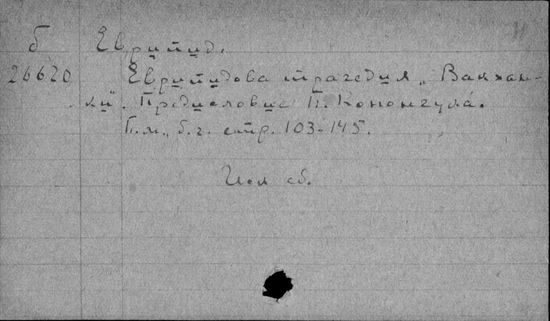 б Еврипид.
26620 Еврипидова трагедия „Вакхан-
ки". Предисловие П.
Б.м., б.г. стр. 103-145.
сб.